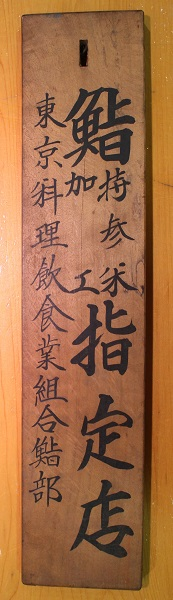 鮨持参米加工指定店
東京料理飲食業組合鮨部